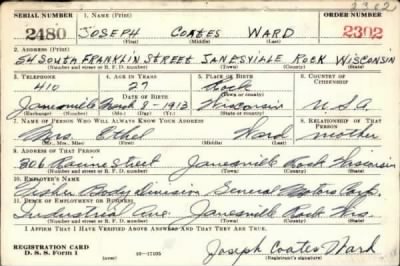 2302
SERIAL NUMBER 1. NAME (Print) ORDER NUMBER
2480 JOSEPH COATES WARD 2302
(First) (Middle) (Last)
2. ADDRESS (Print)
54 SOUTH FRANKLIN STREET JANESVILLE ROCK WISCONSIN
(Number and street or R. F. D. number) (Town) (County) (State)
3. TELEPHONE 4. AGE IN YEARS 5. PLACE OF BIRTH 6. COUNTRY OF CITIZENSHIP
410 27 Rock
DATE OF BIRTH (Town or county)
Janesville March 8-1913 Wisconsin U.S.A.
(Exchange) (Number) (Mo.) (Day) (Yr.) (State or country)
7. NAME OF PERSON WHO WILL ALWAYS KNOW YOUR ADDRESS 8. RELATIONSHIP OF THAT PERSON
Mrs. Ethel Ward mother
(Mr., Mrs., Miss) (First) (Middle) (Last)
9. ADDRESS OF THAT PERSON
306 Racine Street Janesville Rock Wisconsin
(Number and street or R. F. D. number) (Town) (County) (State)
10. EMPLOYER'S NAME
Fisher Body Division General Motors Corp.
11. PLACE OF EMPLOYMENT OR BUSINESS
Industrial Ave. Janesville Rock Wis.
(Number and street or R. F. D. number) (Town) (County) (State)
I AFFIRM THAT I HAVE VERIFIED ABOVE ANSWERS AND THAT THEY ARE TRUE.
REGISTRATION CARD
D. S. S. Form 1 16-17105 Joseph Coates Ward
(Registrant's signature)